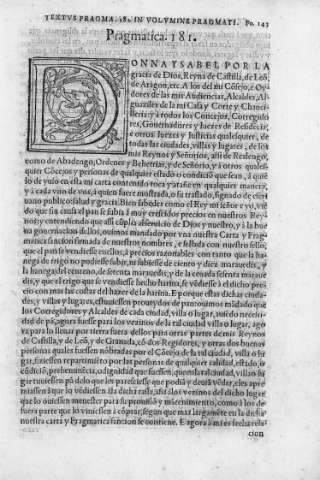 TEXTVS PRAGMA. 181. IN VOLVMINE PRAGMATI. Fo. 143
Pragmatica. 181.
DONNA YSABEL POR LA
gracia de Dios, Reyna de Castilla, de Leõ,
de Aragon, etc. A los del mi Cõsejo, e Oy
dores de las mis Audiencias, Alcaldes, Al-
guaziles de la mi Casa y Corte y Chanci-
lleria: y a todos los Concejos, Corregido
res, Gouernadores y Iuezes de Residẽcia,
e otros Iuezes y Iusticias qualesquier, de
todas las ciudades, villas y lugares, de los
mis Reynos y Señorios, assi de Realengo,
como de Abadengo, Ordenes y Behetrias, y de Señorio, y a otros quales-
quier Cõcejos y personas de qualquier estado o condiciõ que sean, a quiẽ
lo de yuso en esta mi carta contenido toca y atañe en qualquier manera,
y a cada vno de vos, a quien fuere mostrada, o su traslado, signado de escri
uano publico: salud y gracia. Bien sabedes como el Rey mi señor e yo, viẽ
do que sin causa el pan se subia a muy crescidos precios en nuestros Rey-
nos: y entendiendo que assi cũplia al seruicio de Dios y nuestro, y a la bue
na gouernacion dellos, ouimos mandado por vna nuestra Carta y Prag-
matica sancion firmada de nuestros nombres, e sellada con nuestro sello,
que el pan se vendiesse en ellos, a precios razonables con tanto que la ha-
nega de trigo no pudiesse subir, ni subiesse de ciento y diez marauedis, y
la hanega del centeno, de setenta marauedis, y de la ceuada sesenta maraue
dis, y que si el trigo que se vendiesse hecho harina, se vẽdiesse a el dicho pre
cio con mas las costas del hazer de la harina. E porque estas dichas ciuda-
des, y villas y lugares, estuuiessen proueydos de pan ouimos mãdado que
los Corregidores y Alcaldes de cada ciudad, villa o lugar, auiẽdo necessi-
dad de pã, agora fuesse para los vezinos de la tal ciudad villa o lugar, ago
ra para lo lleuar por tierra fuera dellos para otras partes de mis Reynos
de Castilla, y de Leõ, y de Granada, cõ dos Regidores, y otras dos buenas
personas quales fuessen nõbradas por el Cõcejo de la tal ciudad, villa o lu
gar, fiziessen repartimiẽto por las personas de qualquier calidad, estado, o
cõdiciõ, preheminẽcia, o dignidad que fuessen, quẽ en la tal ciudad, villa o lu
gar tuuiessen pã dello que les paresciesse que podiã y deuiã vẽder, e les apre
miassen a que lo vẽdiessen a la dicha tassa, assi a los vezinos del dicho lugar
que lo ouiessen menester para su prouisiõ y mãtenimiento, como a los de
fuera parte que lo viniessen a cõprar, segun que mas largamẽte en la dicha
nuestra carta y Pragmatica sancion se contiene. E agora a mi es fecha rela
cion